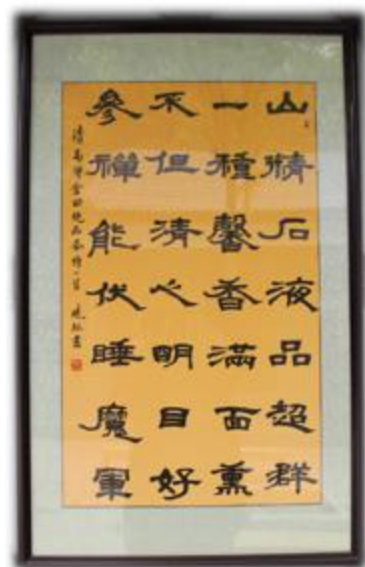 山精石液品超群
一種馨香滿面熏
不但清心明目好
參禪能伏睡魔軍
清高僧 品茶诗一首 书